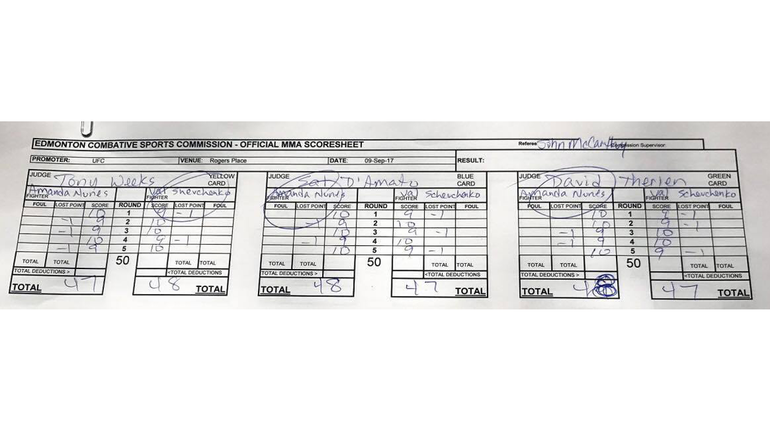 EDMONTON COMBATIVE SPORTS COMMISSION - OFFICIAL MMA SCORESHEET Referee: John McCarthy Supervisor:
PROMOTER: UFC VENUE: Rogers Place DATE: 09-Sep-17 RESULT:
JUDGE Tony Weeks YELLOW CARD
FIGHTER Amanda Nunes FIGHTER Val Shevchenko
FOUL LOST POINT SCORE ROUND SCORE LOST POINT FOUL
10 1 9 -1
-1 9 2 10
-1 9 3 10
10 4 9 -1
-1 9 5 10
TOTAL TOTAL 50 TOTAL TOTAL
TOTAL DEDUCTIONS > <TOTAL DEDUCTIONS
TOTAL 47 48 TOTAL
JUDGE Sal D'Amato BLUE CARD
FIGHTER Amanda Nunes FIGHTER Val Schevchenko
FOUL LOST POINT SCORE ROUND SCORE LOST POINT FOUL
10 1 9 -1
-1 9 2 10
10 3 9 -1
-1 9 4 10
10 5 9 -1
TOTAL TOTAL 50 TOTAL TOTAL
TOTAL DEDUCTIONS > <TOTAL DEDUCTIONS
TOTAL 48 47 TOTAL
JUDGE David Therien GREEN CARD
FIGHTER Amanda Nunes FIGHTER Val Schevchenko
FOUL LOST POINT SCORE ROUND SCORE LOST POINT FOUL
10 1 9 -1
10 2 9 -1
-1 9 3 10
-1 9 4 10
10 5 9 -1
TOTAL TOTAL 50 TOTAL TOTAL
TOTAL DEDUCTIONS > <TOTAL DEDUCTIONS
TOTAL 48 47 TOTAL